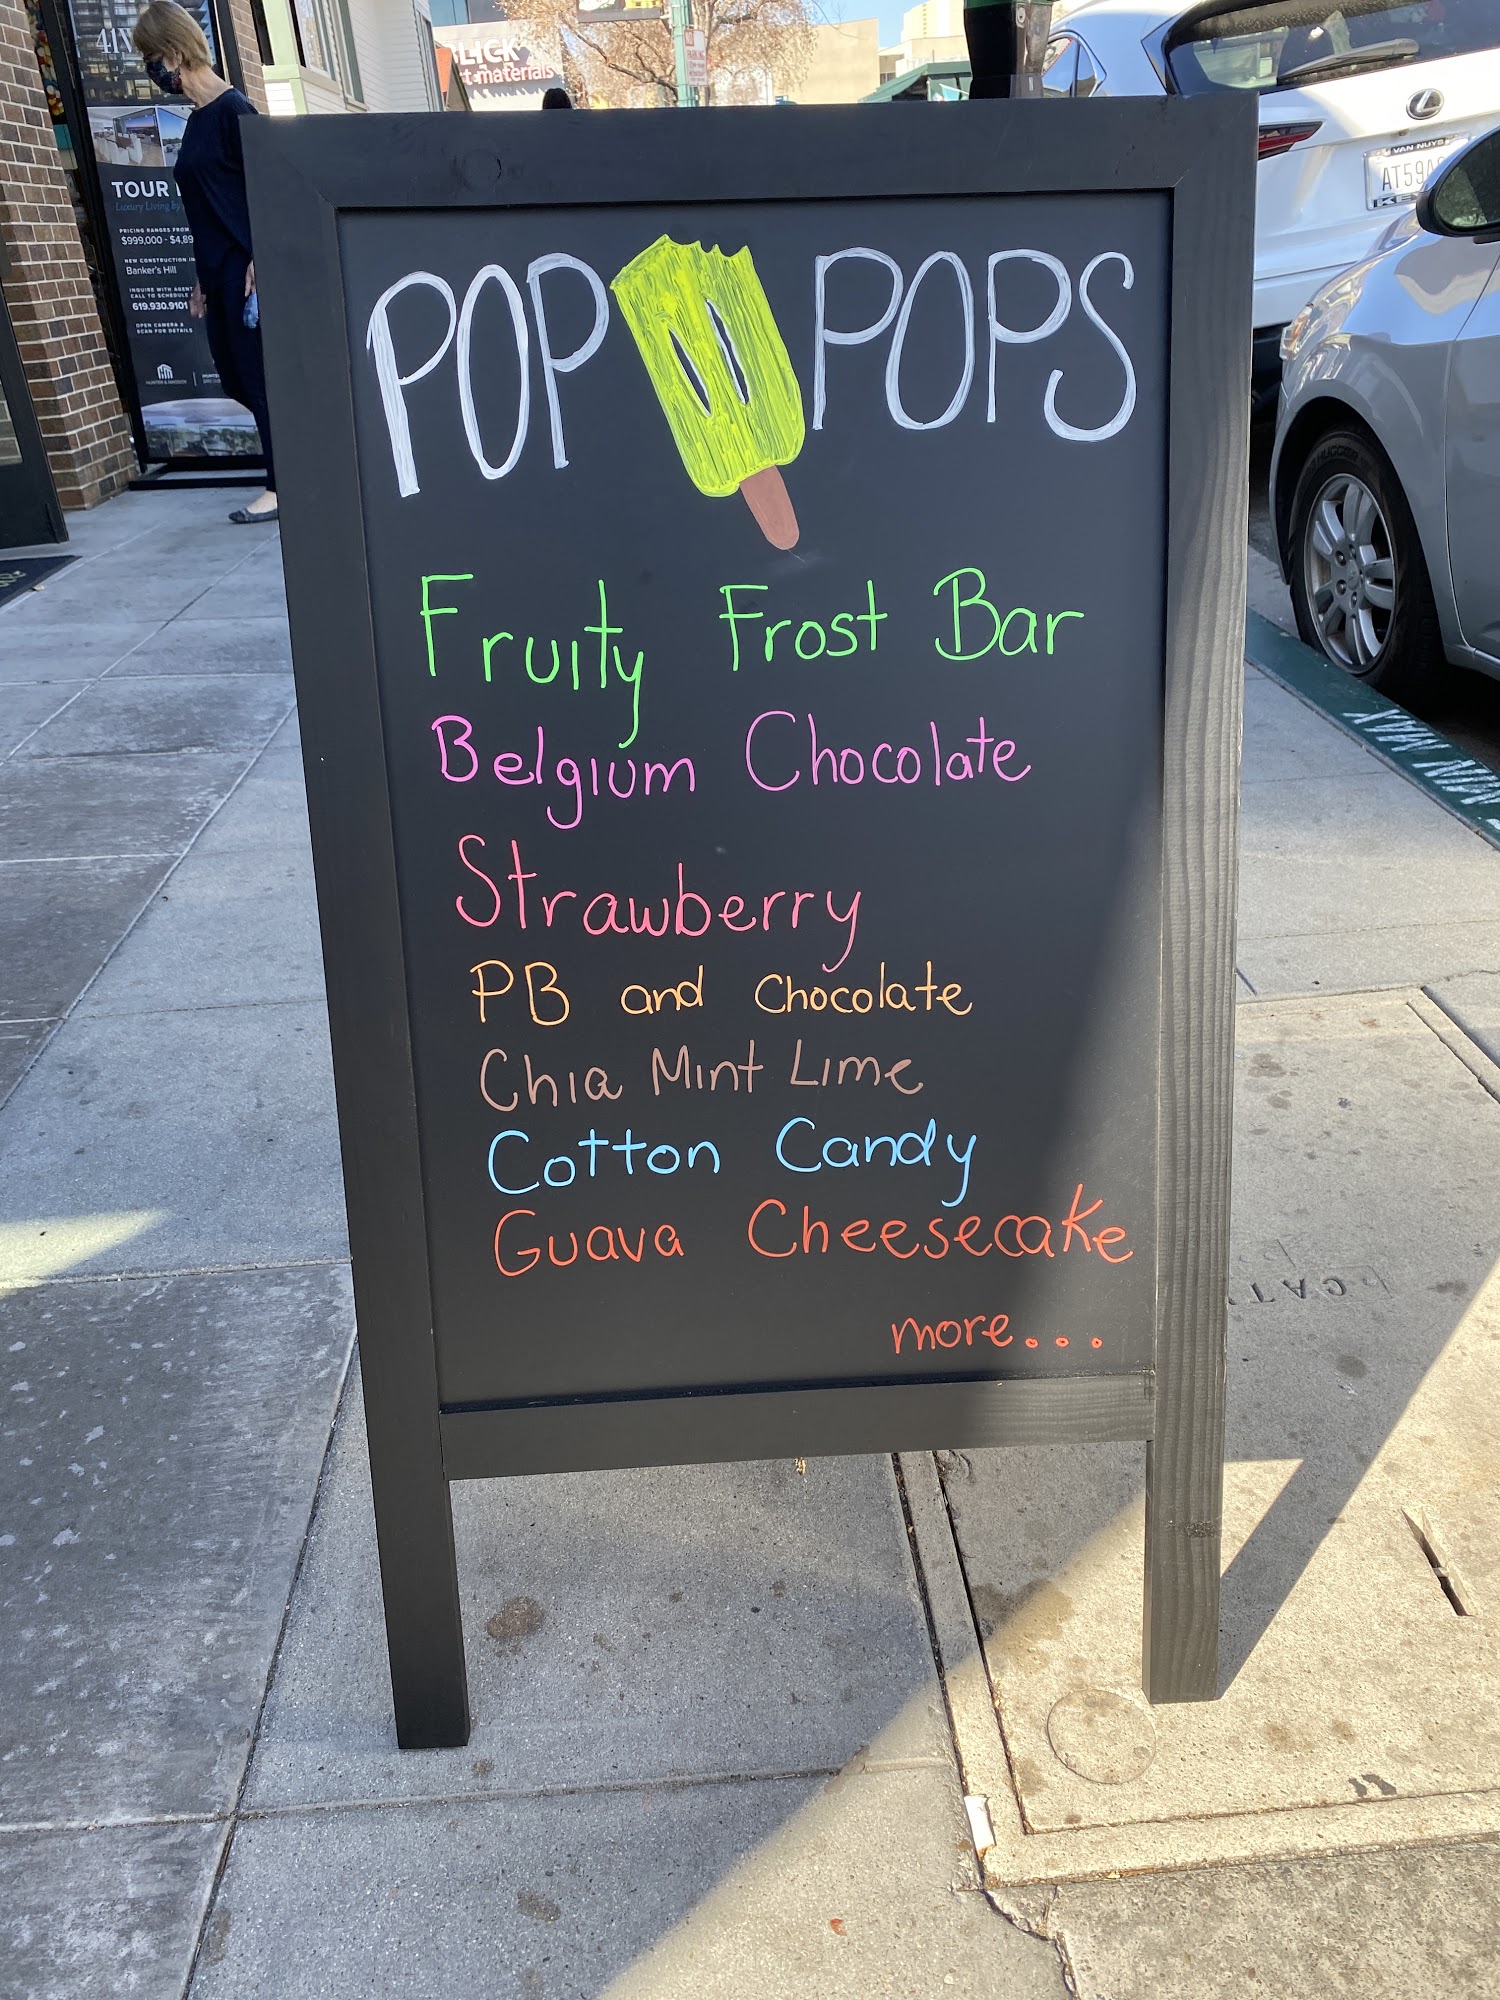 POP POPS
Fruity Frost Bar
Belgium Chocolate
Strawberry
PB and Chocolate
Chia Mint Lime
Cotton Candy
Guava Cheesecake
more...
TOUR
Luxury Living by
PRICING RANGES FROM
$999,000 - $4,89
NEW CONSTRUCTION IN
Banker's Hill
INQUIRE WITH AGENT
CALL TO SCHEDULE
619.930.9101
OPEN CAMERA &
SCAN FOR DETAILS
BLICK
materials
VAN NUYS
AT59
MIN MAX